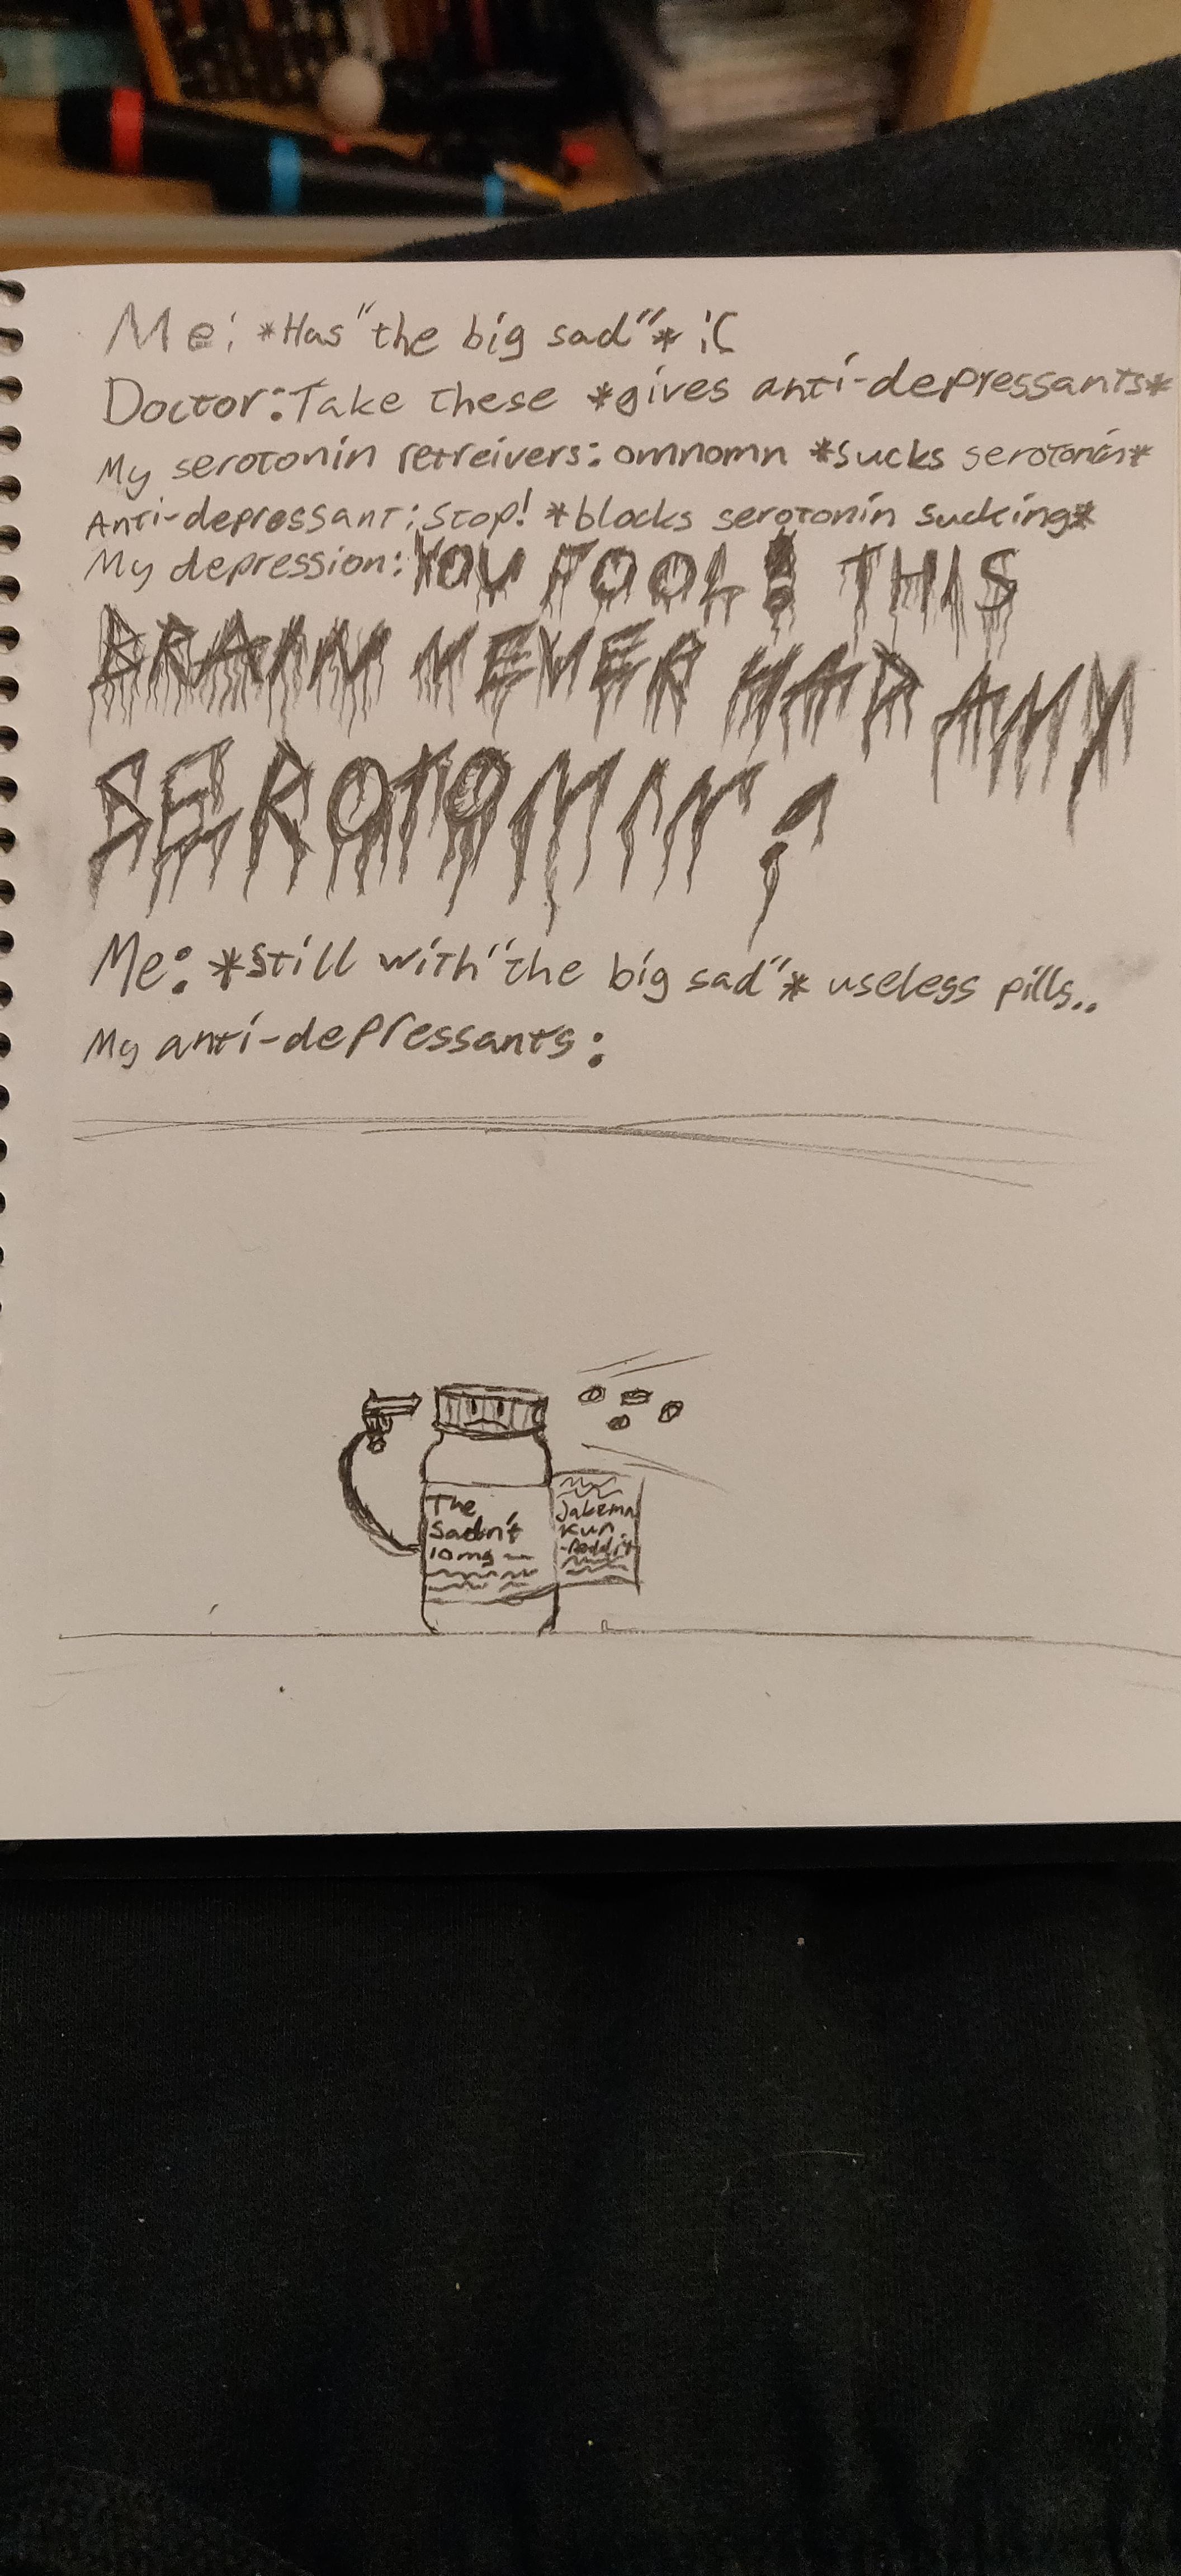 Me: *Has "the big sad"* :'(
Doctor: Take these *gives anti-depressants*
My serotonin retreivers: omnomn *sucks serotonin*
Anti-depressant: Stop! *blocks serotonin sucking*
My depression: YOU FOOL! THIS
BRAIN NEVER HAD ANY
SEROTONIN!
Me: *Still with "the big sad"* useless pills..
My anti-depressants:
The
Sadn't
10mg
Jakemn
Kun
-Reddit